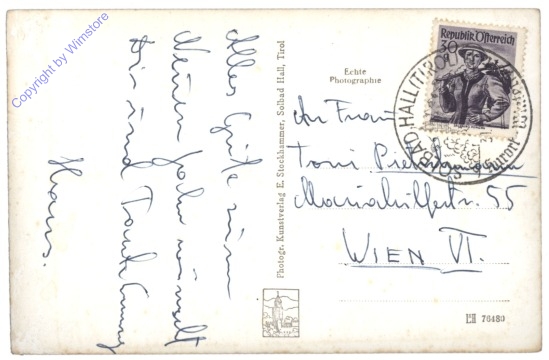 Copyright by Wimstore
Alles Gute zum
Neuen Jahr wünscht
Dir und Tante
Hans.
Photogr. Kunstverlag E. Stockhammer, Solbad Hall, Tirol
Echte
Photographie
Republik Österreich
30
SOLBAD HALL (TIROL)
Kurort
An Frau
Toni
Mariahilferstr. 55
WIEN VI.
76480